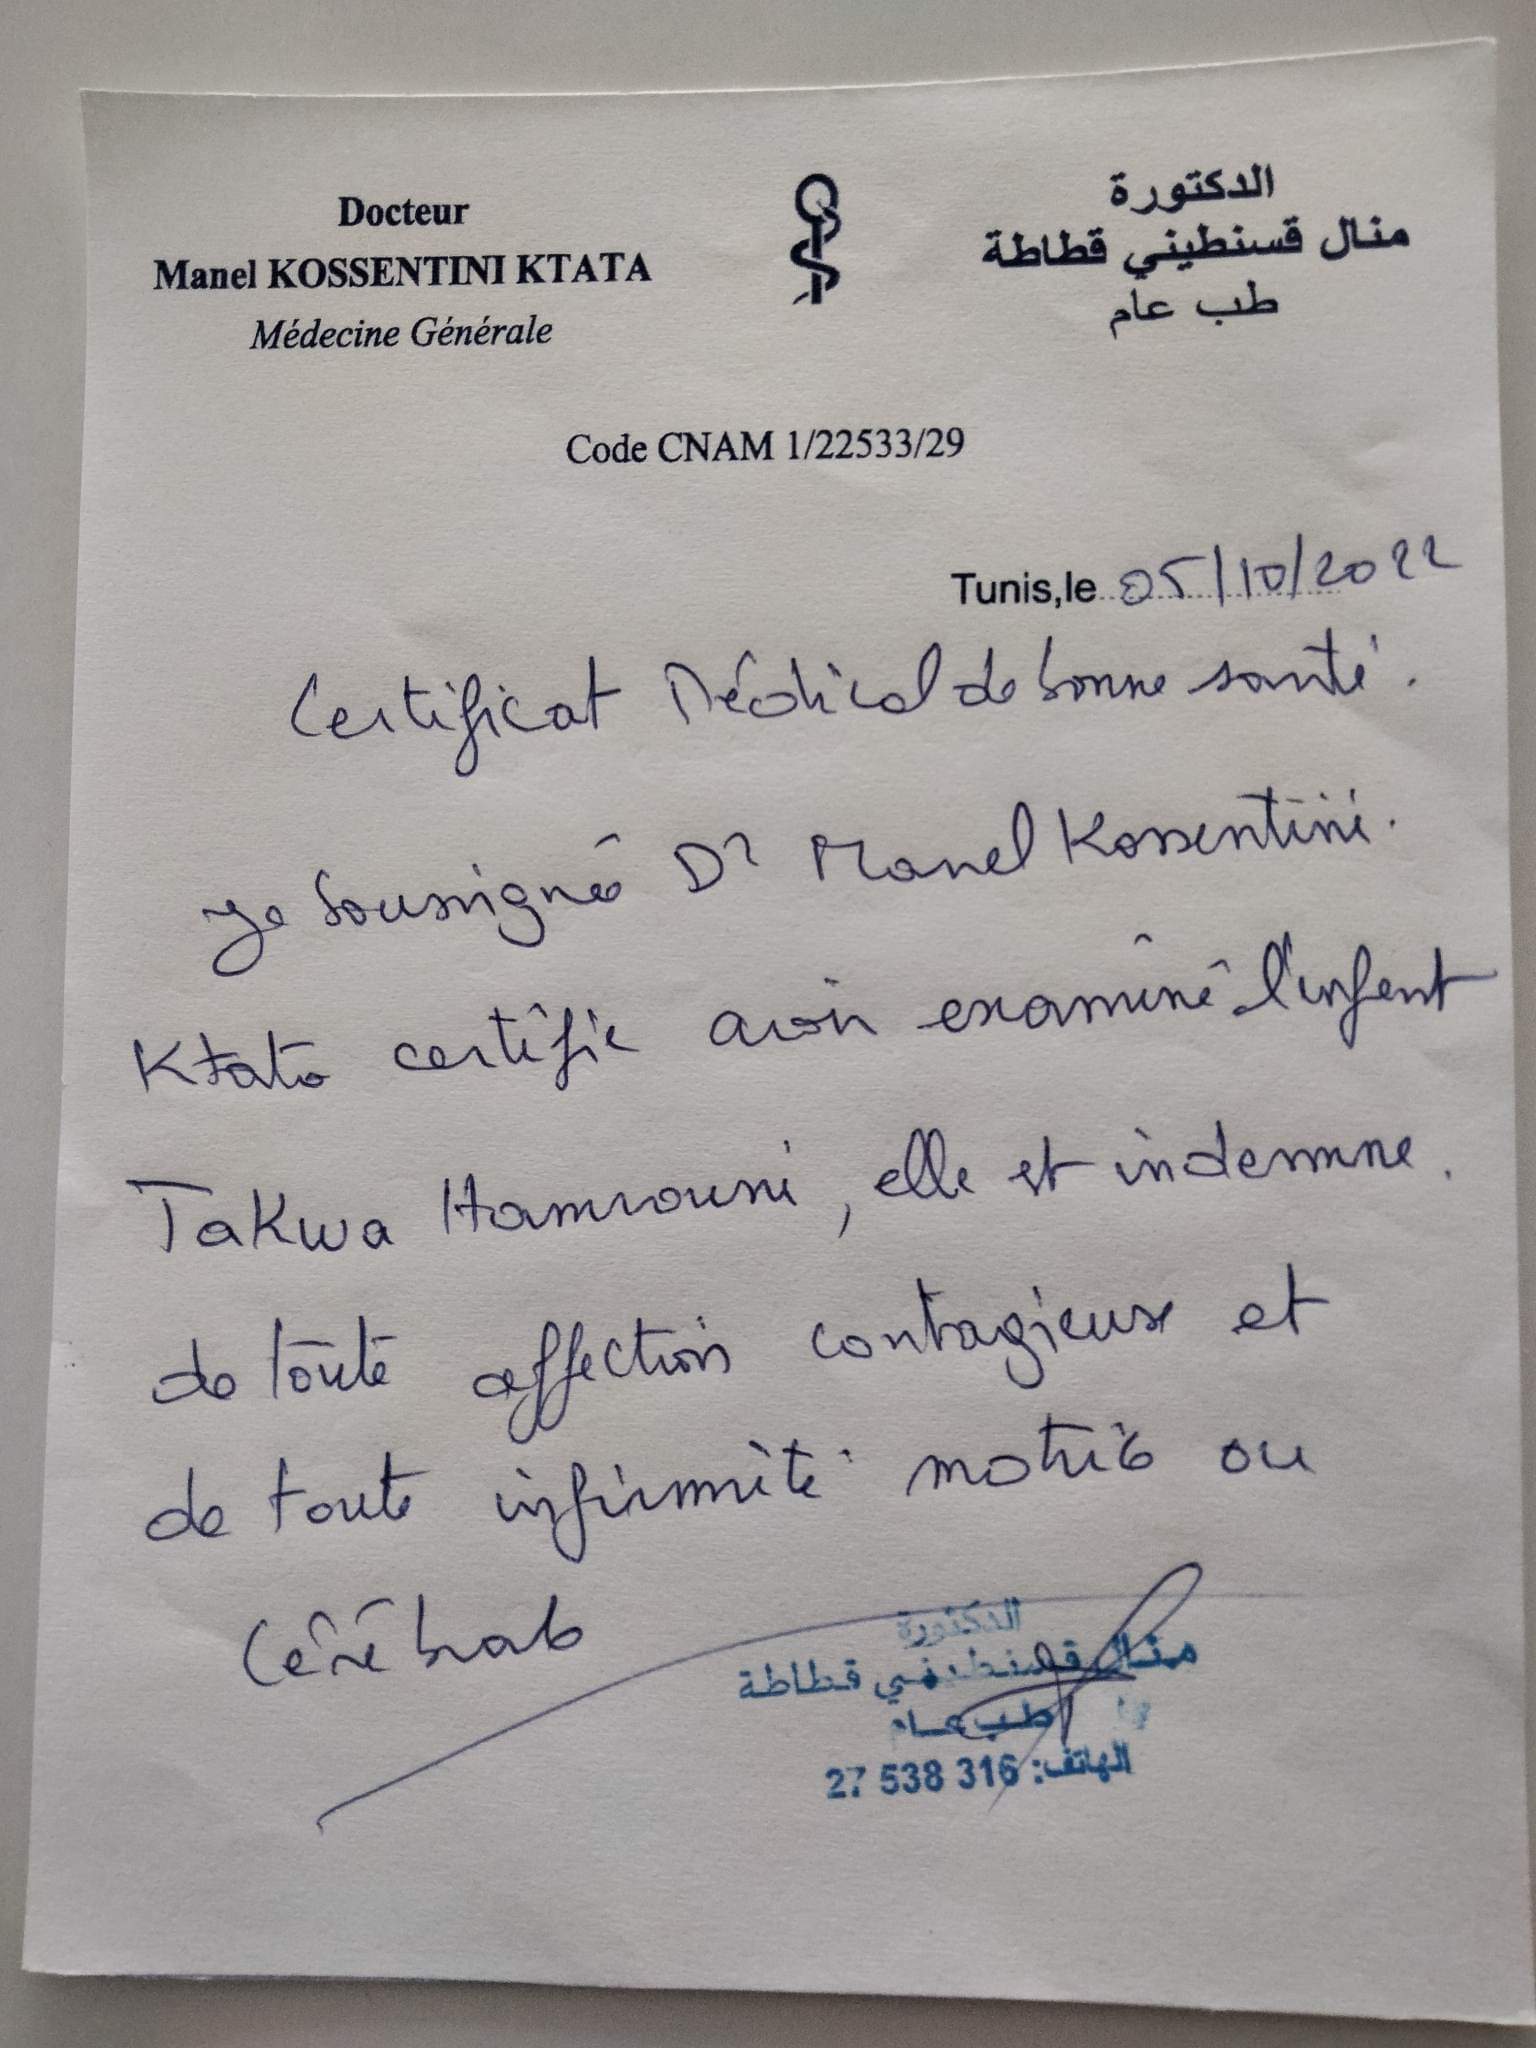 Docteur
Manel KOSSENTINI KTATA
Médecine Générale
الدكتورة
منال قسنطيني قطاطة
طب عام
Code CNAM 1/22533/29
Tunis,le 05/10/2022
Certificat Médical de bonne santé.
Je soussigné Dr Manel Kossentini.
Ktata certifie avoir examiné l'enfent
Takwa Hamrouni, elle et indemne.
de toute affection contagieuse et
de toute infirmité motrice ou
Cérébrale
الدكتورة
منال قسنطيني قطاطة
طب عام
الهاتف: 27 538 316